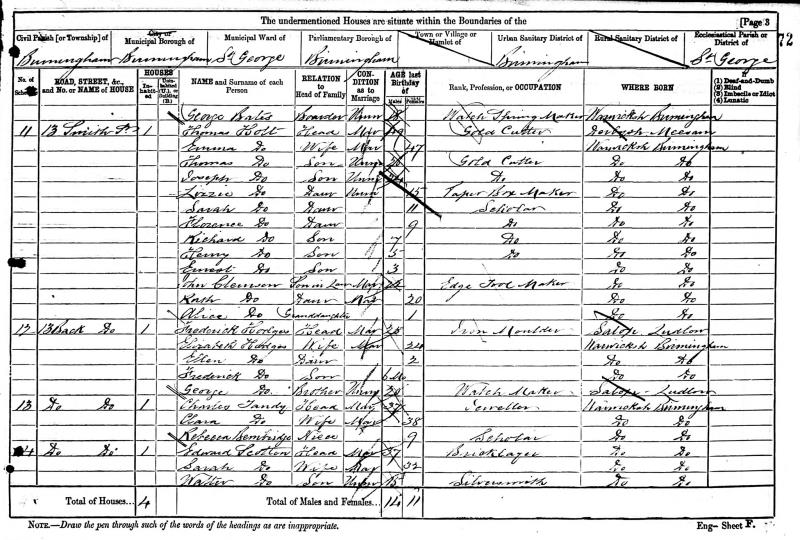 The undermentioned Houses are situate within the Boundaries of the
[Page 3
72
Civil Parish [or Township] of
City or Municipal Borough of
Municipal Ward of
Parliamentary Borough of
Town or Village or Hamlet of
Urban Sanitary District of
Rural Sanitary District of
Ecclesiastical Parish or District of
Birmingham Birmingham St George Birmingham Birmingham St George
No. of Schedule
ROAD, STREET, &c., and No. or NAME of HOUSE
HOUSES
Inhabited
Uninhabited (U.), or Building (B.)
NAME and Surname of each Person
RELATION to Head of Family
CONDITION as to Marriage
AGE last Birthday of
Males
Females
Rank, Profession, or OCCUPATION
WHERE BORN
If
(1) Deaf-and-Dumb
(2) Blind
(3) Imbecile or Idiot
(4) Lunatic
George Bates Boarder Unm Watch Spring Maker Warwicksh Birmingham
11 13 Smith St 1 Thomas Holt Head Mar 49 Gold Cutter
Emma Do Wife Mar 47 Warwicksh Birmingham
Thomas Do Son Unm Gold Cutter Do Do
Joseph Do Son Unm Do Do Do
Lizzie Do Daur Unm 15 Paper Box Maker Do Do
Sarah Do Daur 11 Scholar Do Do
Florence Do Daur 9 Do Do Do
Richard Do Son 7 Do Do Do
Henry Do Son 5 Do Do Do
Ernest Do Son 3 Do Do
John Clemson Son in Law Mar 22 Edge Tool Maker Do Do
Kath Do Daur Mar 20 Do Do
Alice Do Granddaughter 1 Do Do
12 13 Back Do 1 Frederick Hodges Head Mar 25 Iron Moulder Salop Ludlow
Elizabeth Hodges Wife Mar 24 Warwicksh Birmingham
Ellen Do Daur 2 Do Do
Frederick Do Son 6 Mo Do Do
George Do Brother Unm 20 Watch Maker Salop Ludlow
13 Do Do 1 Charles Tandy Head Mar 37 Jeweller Warwicksh Birmingham
Clara Do Wife Mar 38 Do Do
Rebecca Bembridge Niece 9 Scholar Do Do
14 Do Do 1 Edward Head Mar 37 Bricklayer Do Do
Sarah Do Wife Mar 32 Do Do
Walter Do Son Unm 15 Silversmith Do Do
Total of Houses... 4
Total of Males and Females... 14 11
NOTE.—Draw the pen through such of the words of the headings as are inappropriate.
Eng– Sheet F.